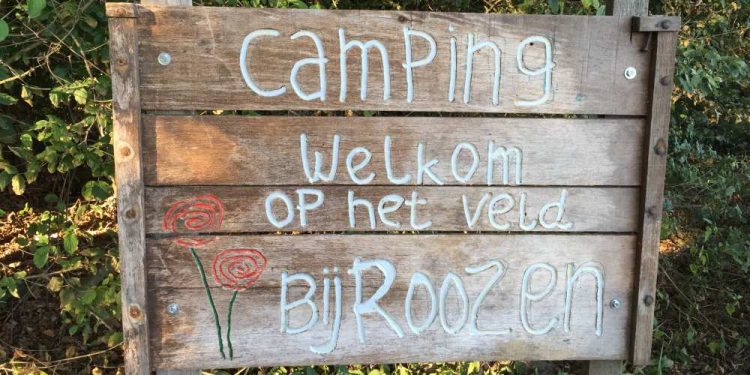 Camping
Welkom
op het veld
Bij Roozen